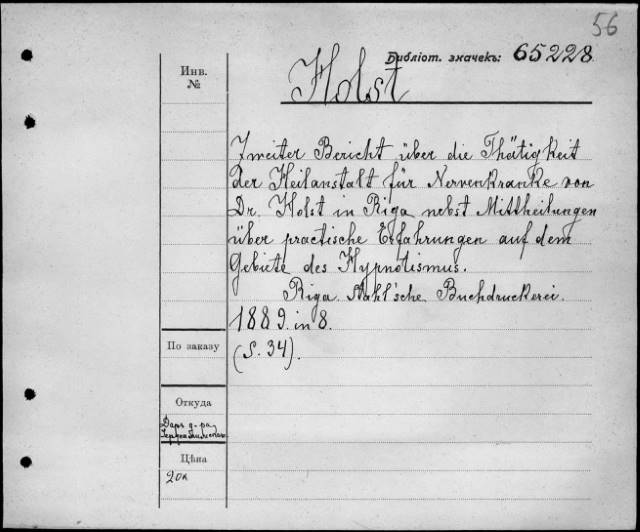 56
Библіот. значекъ: 65228
Инв.
№
Holst
Zweiter Bericht über die Thätigkeit
der Heilanstalt für Nervenkranke von
Dr. Holst in Riga nebst Mittheilungen
über practische Erfahrungen auf dem
Gebiete des Hypnotismus.
Riga. Stahl'sche Buchdruckerei.
1889. in 8.
По заказу
(S. 34).
Откуда
Даръ д-ра
Цѣна
20к